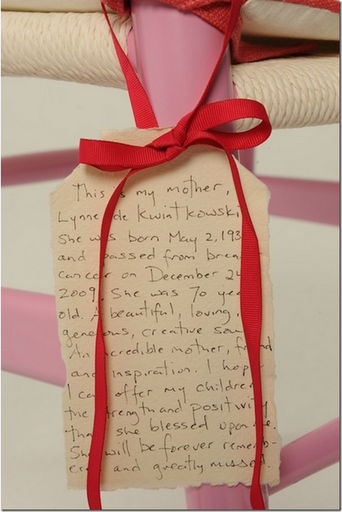 This is my mother,
Lynne de Kwiatkowski
She was born May 2, 193
and passed from brea
cancer on December 24
2009. She was 70 yea
old. A beautiful, loving,
generous, creative sou
An incredible mother, friend
and inspiration. I hop
I can offer my children
the strength and positivity
that she blessed upon me.
She will be forever rememb-
ered and greatly missed.